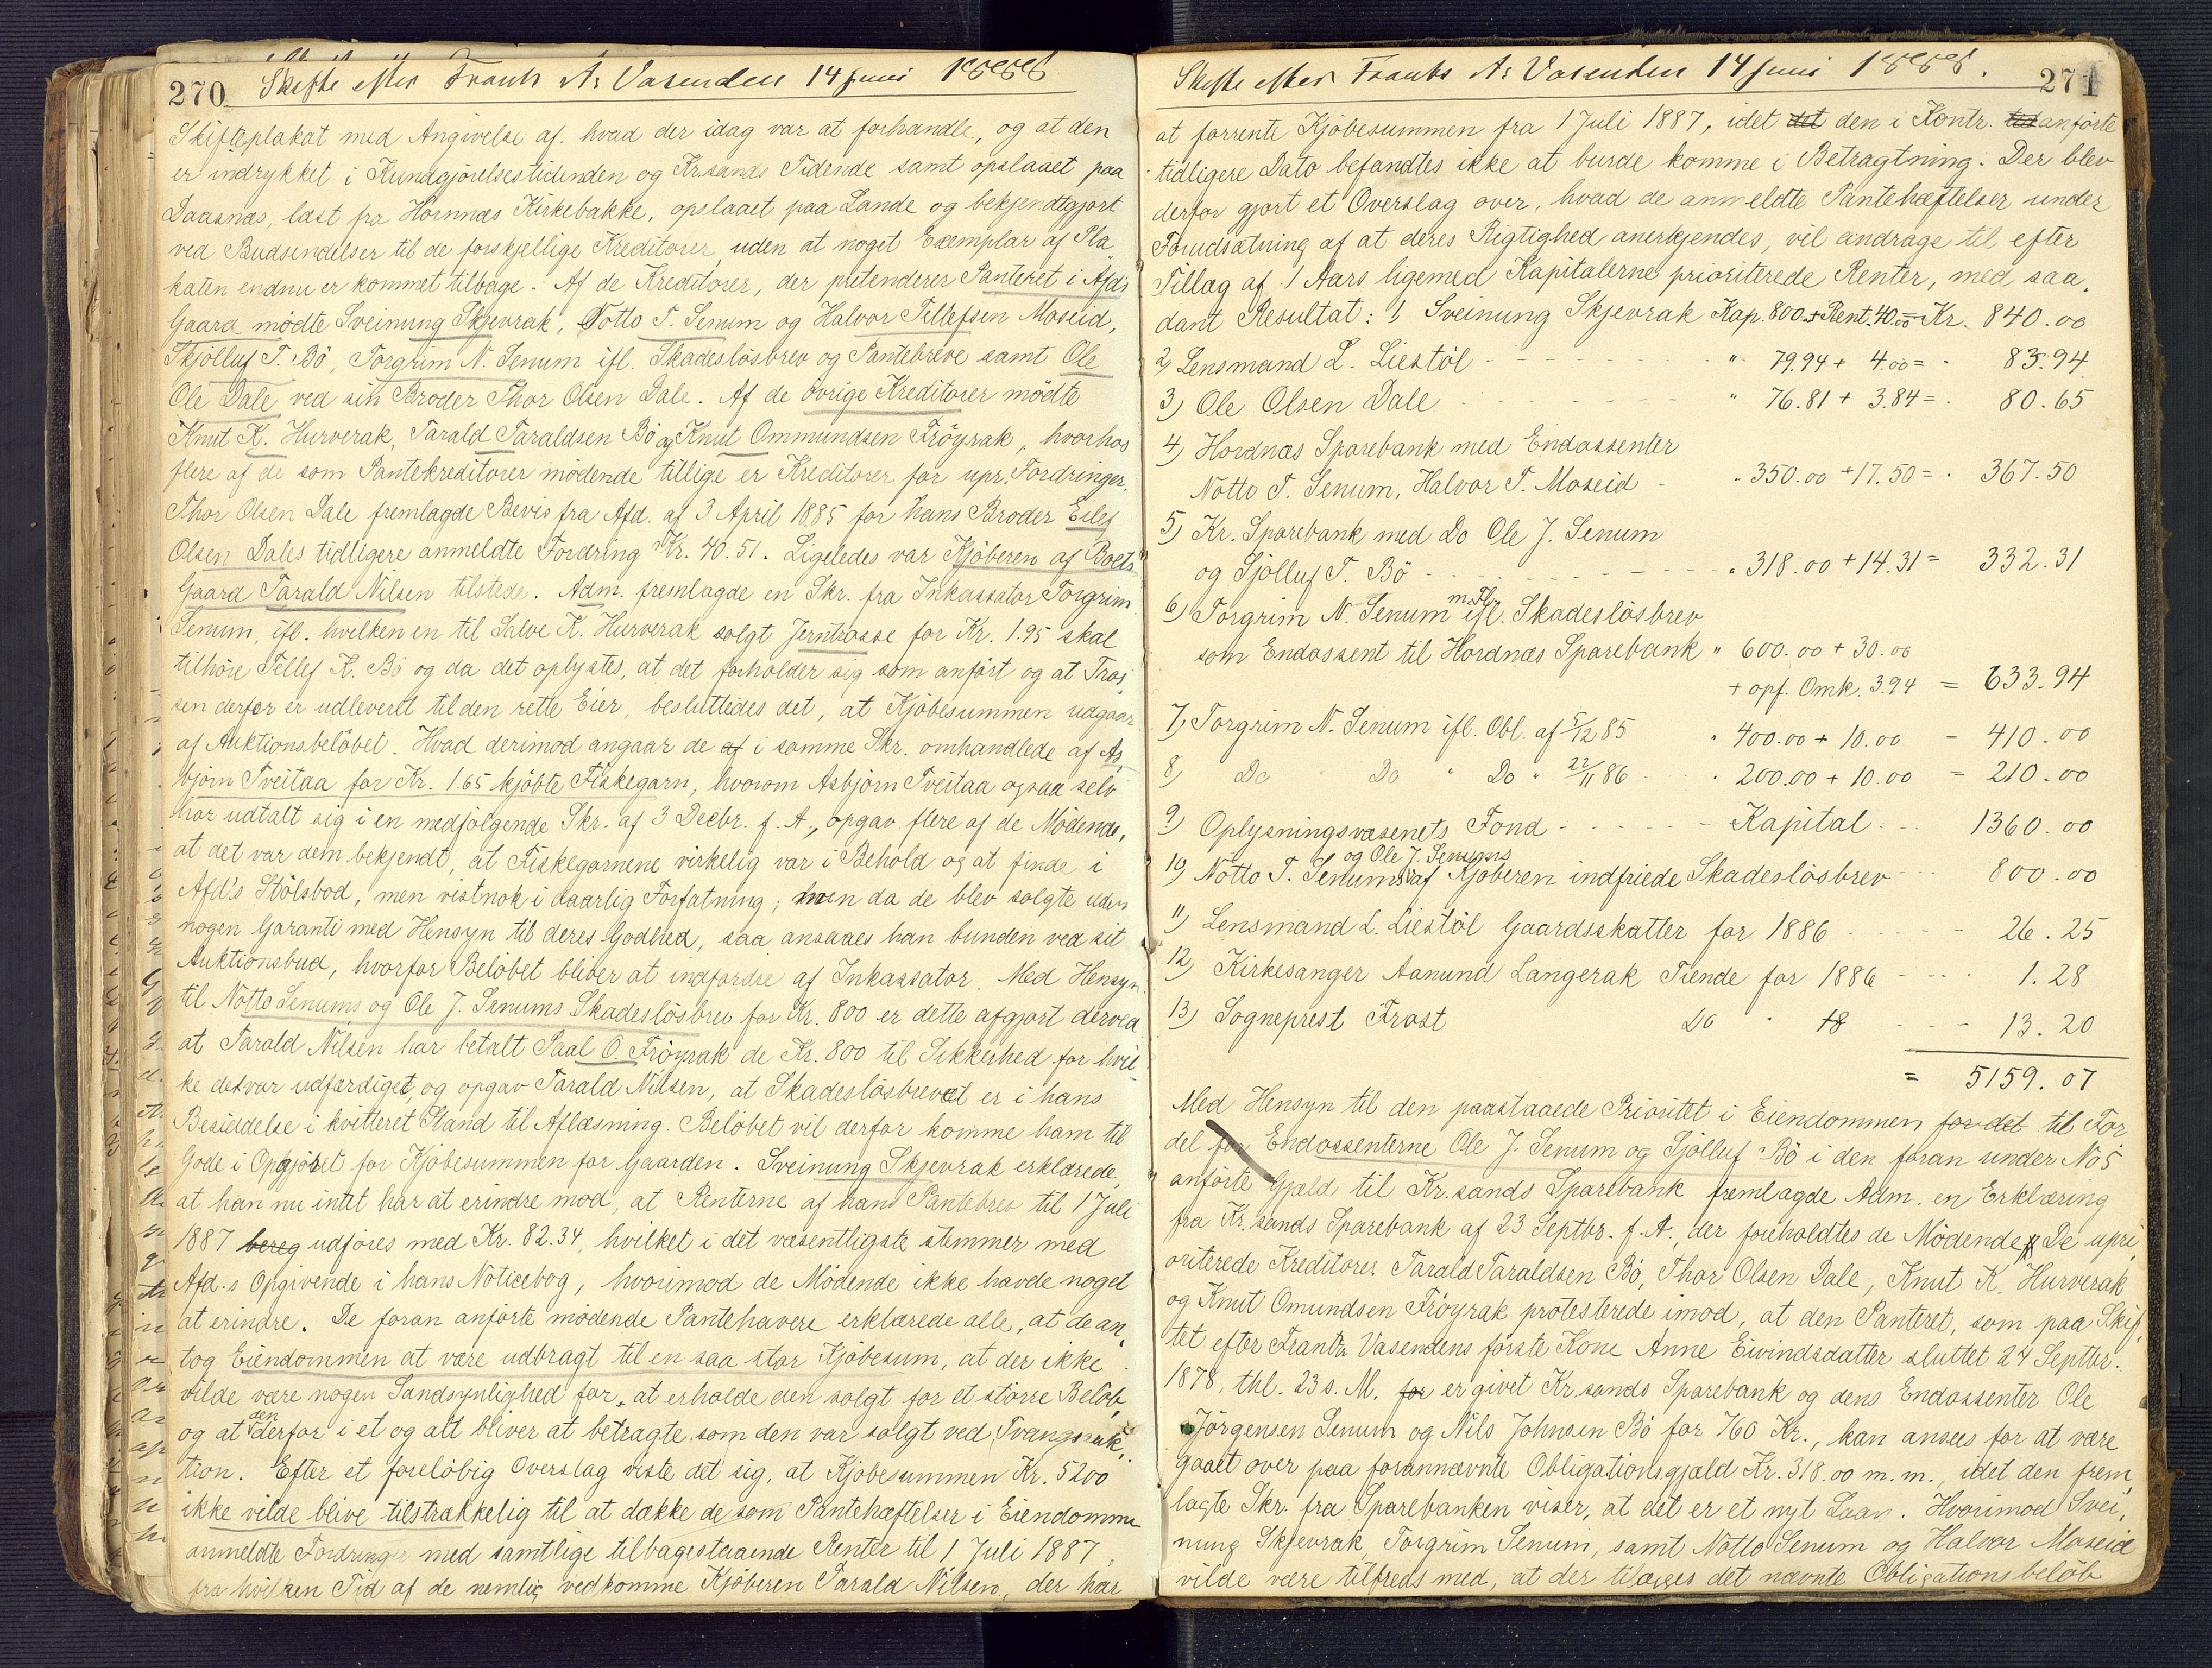 270 Skifte efter Frants A. Vasenden 14 Juni 1888
Skifteplakat med Angivelse af hvad der idag var at forhandle, og at den
er indrykket i Kundgjörelsestidenden og Kr.sands Tidende samt opslaaet paa
Daasnæs, læst fra Hornnæs Kirkebakke, opslaaet paa Lande og bekjendtgjort
ved Budsendelser til de forskjellige Kreditorer, uden at noget Exemplar af Pla-
katen endnu er kommet tilbage. Af de Kreditorer, der pretenderer Panteret i Afds
Gaard mödte Sveinung Skjevrak, Notto T. Senum og Halvor Tellefsen Moseid,
Skjölluf T. Bö, Torgrim N. Senum ifl. Skadeslösbrev og Pantebreve samt Ole
Ole Dale ved sin Broder Thor Olsen Dale. Af de övrige Kreditorer mödte
Knut K. Hurverak, Tarald Taraldsen Bö og Knut Ommundsen Fröyrak, hvorhos
flere af de som Pantekreditorer mödende tillige er Kreditorer for upr. Fordringer.
Thor Olsen Dale fremlagde Bevis fra Afd. af 3 April 1885 for hans Broder Eilef
Olsen Dales tidligere anmeldte Fordring Kr. 40.51. Ligeledes var Kjöberen af Boets
Gaard Tarald Nilsen tilstede. Adm. fremlagde en Skr. fra Inkassator Torgrim
Senum, ifl. hvilken en til Salve K. Hurverak solgt Jerntrosse for Kr. 1.95 skal
tilhöre Tellef K. Bö og da det oplystes, at det forholder sig som anfört og at Tros-
sen derfor er udleveret til den rette Eier, besluttedes det, at Kjöbesummen udgaar
af Auktionsbelöbet. Hvad derimod angaar de af i samme Skr. omhandlede af As-
björn Tveitaa for Kr. 1.65 kjöbte Fiskegarn, hvorom Asbjörn Tveitaa ogsaa selv
har udtalt sig i en medfölgende Skr. af 3 Decbr. f. A., opgav flere af de Mödende,
at det var dem bekjendt, at Fiskegarnene virkelig var i Behold og at finde i
Afd's Stölsbod, men vistnok i daarlig Forfatning; men da de blev solgte uden
nogen Garanti med Hensyn til deres Godhed, saa ansaaes han bunden ved sit
Auktionsbud, hvorfor Belöbet bliver at indfordre af Inkassator. Med Hensyn
til Notto Senums og Ole J. Senums Skadeslösbrev for Kr. 800 er dette afgjort derved
at Tarald Nilsen har betalt Paal O. Fröyrak de Kr. 800 til Sikkerhed for hvil-
ke det var udfærdiget, og opgav Tarald Nilsen, at Skadeslösbrevet er i hans
Besiddelse i kvitteret Stand til Aflæsning. Belöbet vil derfor komme ham til
Gode i Opgjöret for Kjöbesummen for Gaarden. Sveinung Skjevrak erklærede,
at han nu intet har at erindre mod, at Renterne af hans Pantebrev til 1 Juli
1887 bereg udföres med Kr. 82.34, hvilket i det væsentligste stemmer med
Afd.s Opgivende i hans Noticebog, hvorimod de Mödende ikke havde noget
at erindre. De foran anförte mödende Pantehavere erklærede alle, at de an-
tog Eiendommen at være udbragt til en saa stor Kjöbesum, at der ikke
vilde være nogen Sandsynlighed for, at erholde den solgt for et större Belöb,
og at den derfor i et og alt bliver at betragte som den var solgt ved Tvangsauk-
tion. Efter et foreløbig Overslag viste det sig, at Kjöbesummen Kr. 5200
ikke vilde blive tilstrækkelig til at dække de som Pantehæftelser i Eiendommen
anmeldte Fordringer med samtlige tilbagestaaende Renter til 1 Juli 1887,
fra hvilken Tid af de nemlig vedkomme Kjöberen Tarald Nilsen, der har
Skifte efter Frants A. Vasenden 14 Juni 1888. 271
at forrente Kjöbesummen fra 1 Juli 1887, idet det den i Kontr. anförte
tidligere Dato befandtes ikke at burde komme i Betragtning. Der blev
derfor gjort et Overslag over, hvad de anmeldte Pantehæftelser under
Forudsætning af at deres Rigtighed anerkjendes, vil andrage til efter
Tillæg af 1 Aars ligemed Kapitalerne prioriterede Renter, med saa-
dant Resultat: 1) Sveinung Skjevrak Kap. 800 + Rent. 40.00 = Kr. 840.00
2) Lensmand L. Liestöl " 79.94 + 4.00 = 83.94
3) Ole Olsen Dale " 76.81 + 3.84 = 80.65
4) Hordnæs Sparebank med Endossenter
Notto T. Senum, Halvor T. Moseid " 350.00 + 17.50 = 367.50
5) Kr. Sparebank med Do Ole J. Senum
og Sjölluf T. Bö " 318.00 + 14.31 = 332.31
6) Torgrim N. Senum m.Fl. ifl. Skadeslösbrev
som Endossent til Hordnæs Sparebank " 600.00 + 30.00
+ opf. Omk. 3.94 = 633.94
7) Torgrim N. Senum ifl. Obl. af 5/12 85 " 400.00 + 10.00 = 410.00
8) Do " Do " Do " 22/11 86 " 200.00 + 10.00 = 210.00
9) Oplysningsvæsenets Fond Kapital 1360.00
10) Notto T. Senums og Ole J. Senums af Kjöberen indfriede Skadeslösbrev 800.00
11) Lensmand L. Liestöl Gaardsskatter for 1886 26.25
12) Kirkesanger Aanund Langerak Tiende for 1886 1.28
13) Sogneprest Frost Do " 18 13.20
= 5159.07
Med Hensyn til den paastaaede Prioritet i Eiendommen for det til For
del for Endossenterne Ole J. Senum og Sjölluf Bö i den foran under No 5
anförte Gjæld til Kr.sands Sparebank fremlagde Adm. en Erklæring
fra Kr.sands Sparebank af 23 Septbr. f. A., der foreholdtes de Mödende. De upri-
oriterede Kreditorer Tarald Taraldsen Bö, Thor Olsen Dale, Knut K. Hurverak
og Knut Omundsen Fröyrak protesterede imod, at den Panteret, som paa Skif-
tet efter Frantz Vasendens förste Kone Anne Eivindsdatter sluttet 24 Septbr.
1878, thl. 23 s. M. for er givet Kr.sands Sparebank og dens Endossenter Ole
Jörgensen Senum og Nils Johnsen Bö for 760 Kr., kan ansees for at være
gaaet over paa forannævnte Obligationsgjæld Kr. 318.00 m. m., idet den frem-
lagte Skr. fra Sparebanken viser, at det er et nyt Laan. Hvorimod Svei-
nung Skjevrak, Torgrim Senum, samt Notto Senum og Halvor Moseid
vilde være tilfreds med, at der tilægges det nævnte Obligationsbelöb